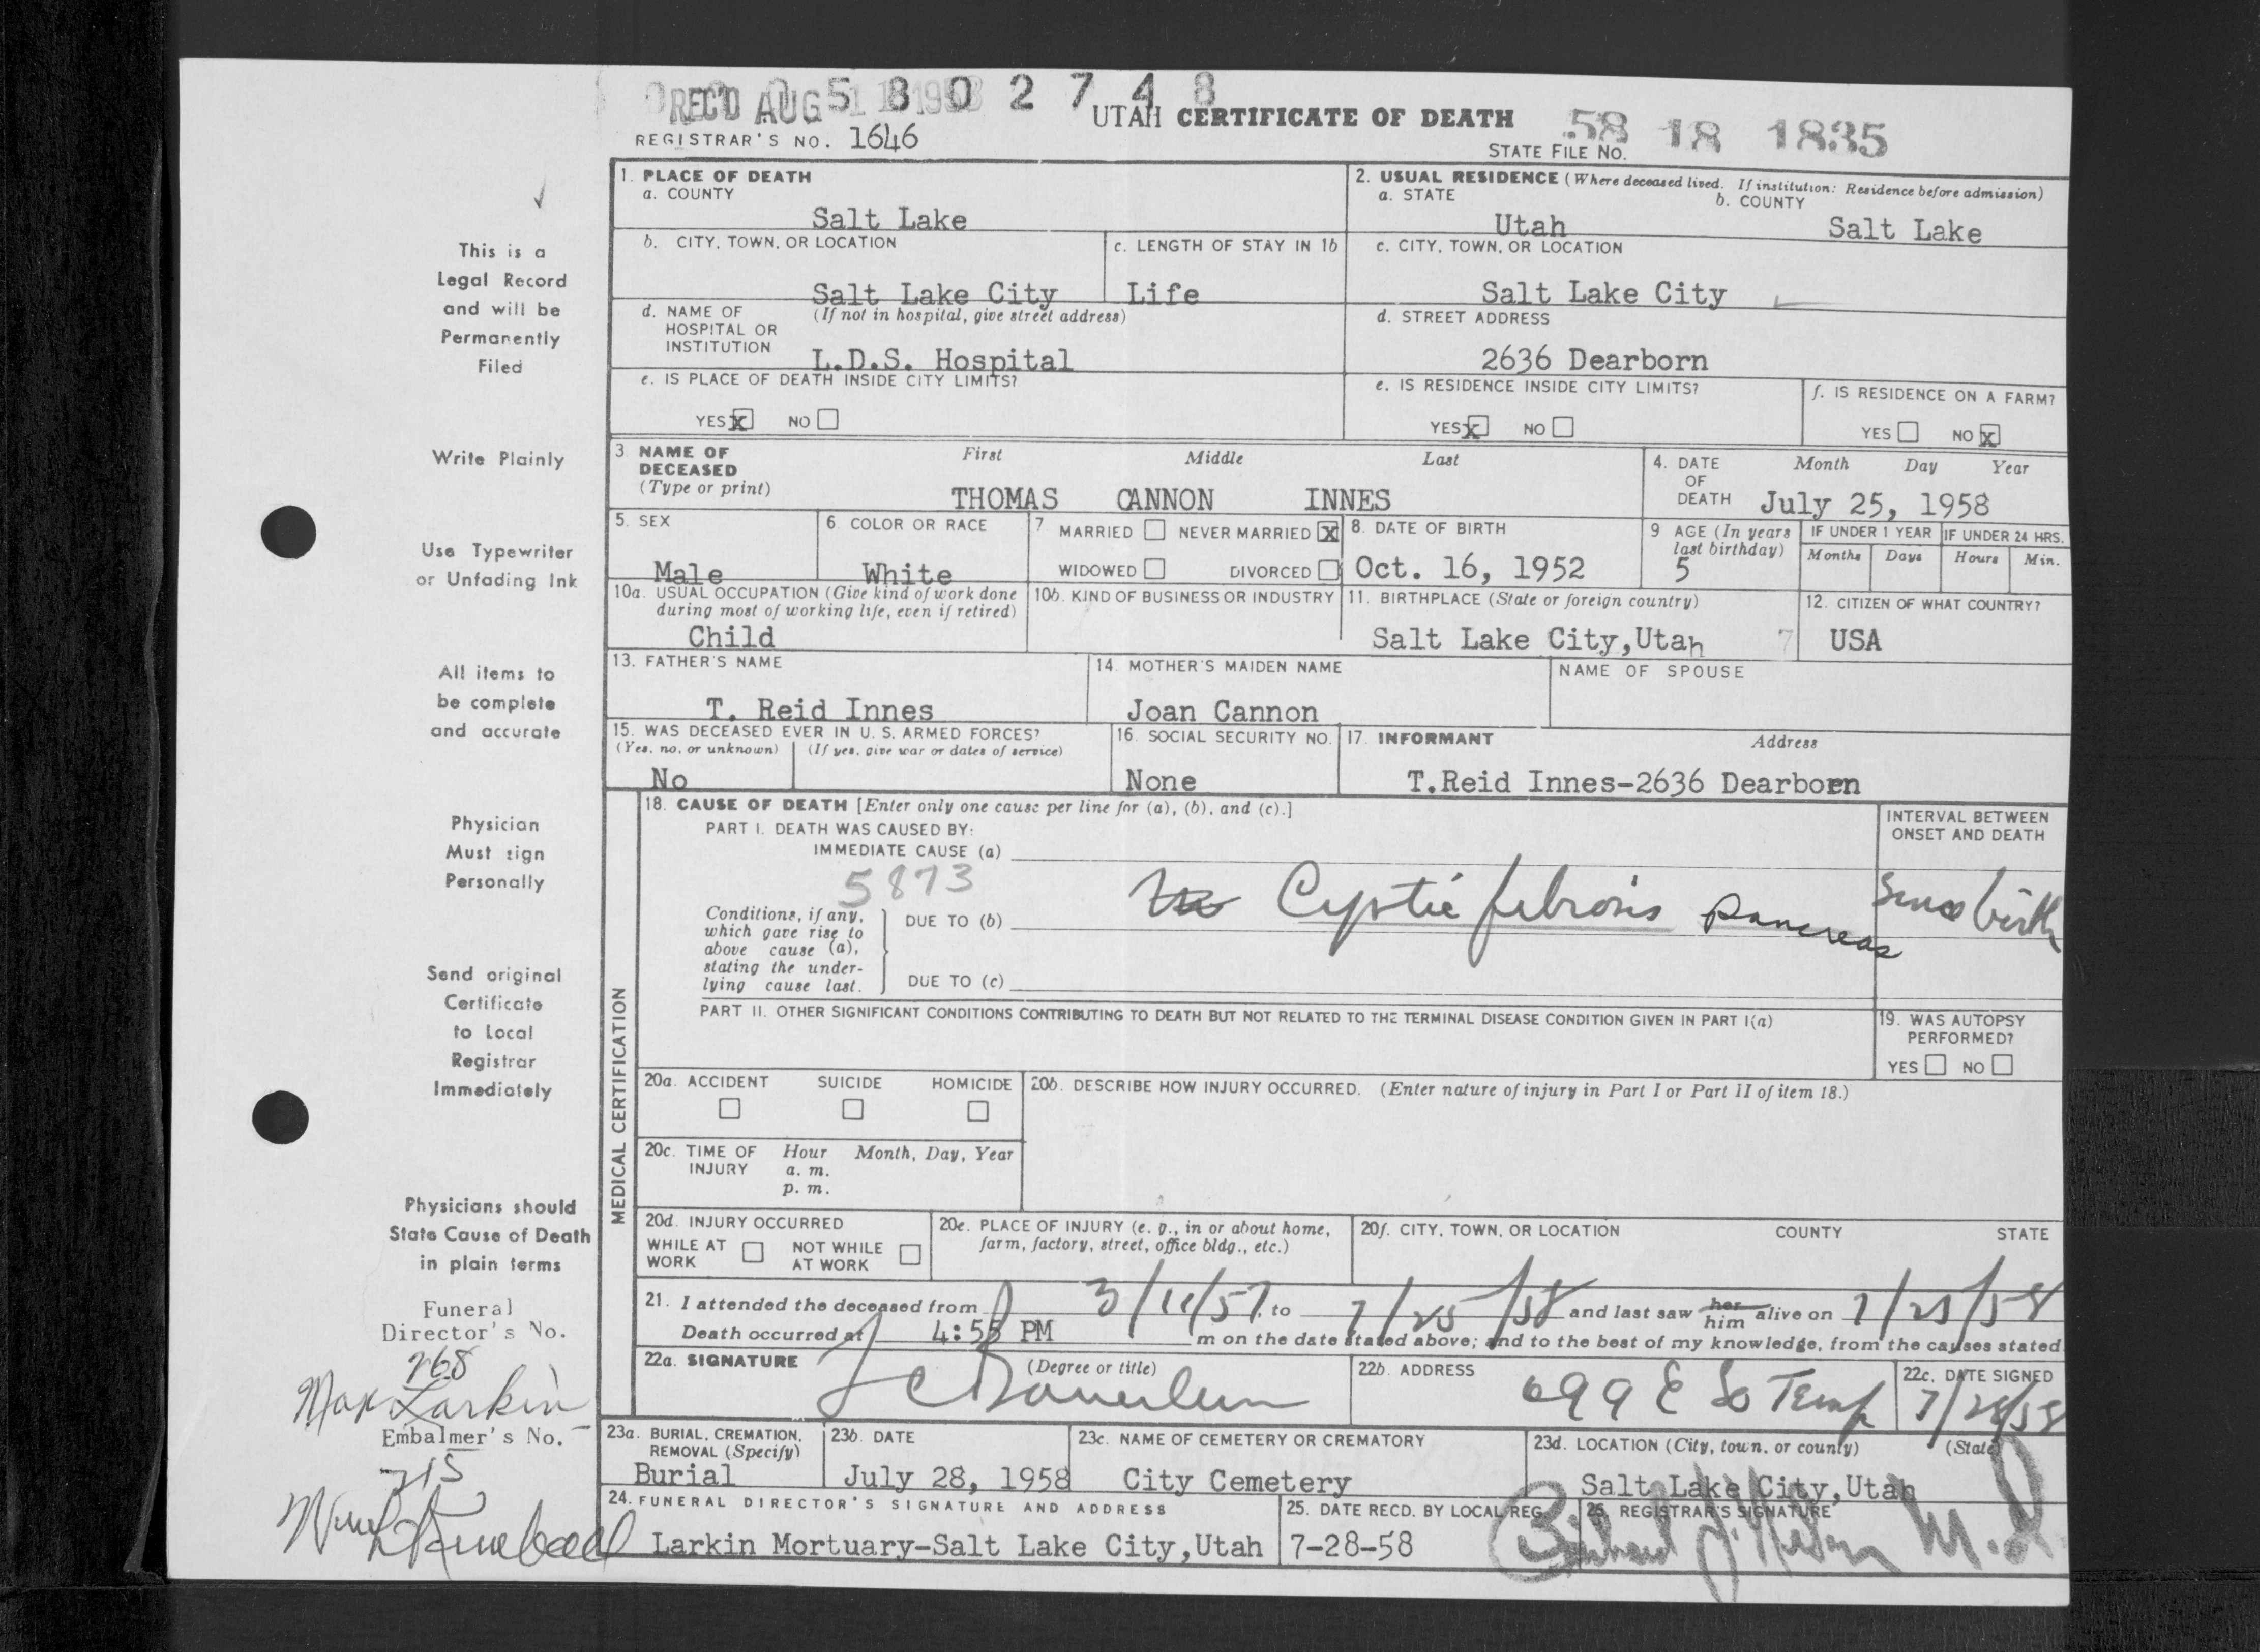 REC'D AUG 5 8 0 2 7 4 8
UTAH CERTIFICATE OF DEATH
58 18 1835
REGISTRAR'S NO. 1646
STATE FILE NO.
1. PLACE OF DEATH
a. COUNTY
Salt Lake
2. USUAL RESIDENCE (Where deceased lived. If institution: Residence before admission)
a. STATE b. COUNTY
Utah Salt Lake
b. CITY, TOWN, OR LOCATION
Salt Lake City
c. LENGTH OF STAY IN 1b
Life
c. CITY, TOWN, OR LOCATION
Salt Lake City
d. NAME OF HOSPITAL OR INSTITUTION (If not in hospital, give street address)
L.D.S. Hospital
d. STREET ADDRESS
2636 Dearborn
e. IS PLACE OF DEATH INSIDE CITY LIMITS?
YES X NO
e. IS RESIDENCE INSIDE CITY LIMITS?
YES X NO
f. IS RESIDENCE ON A FARM?
YES NO X
3. NAME OF DECEASED (Type or print)
First Middle Last
THOMAS CANNON INNES
4. DATE OF DEATH
Month Day Year
July 25, 1958
5. SEX
Male
6. COLOR OR RACE
White
7. MARRIED NEVER MARRIED X
WIDOWED DIVORCED
8. DATE OF BIRTH
Oct. 16, 1952
9 AGE (In years last birthday)
5
IF UNDER 1 YEAR
Months Days
IF UNDER 24 HRS.
Hours Min.
10a. USUAL OCCUPATION (Give kind of work done during most of working life, even if retired)
Child
10b. KIND OF BUSINESS OR INDUSTRY
11. BIRTHPLACE (State or foreign country)
Salt Lake City,Utah 7
12. CITIZEN OF WHAT COUNTRY?
USA
13. FATHER'S NAME
T. Reid Innes
14. MOTHER'S MAIDEN NAME
Joan Cannon
NAME OF SPOUSE
15. WAS DECEASED EVER IN U. S. ARMED FORCES?
(Yes, no, or unknown) (If yes, give war or dates of service)
No
16. SOCIAL SECURITY NO.
None
17. INFORMANT Address
T.Reid Innes-2636 Dearborn
MEDICAL CERTIFICATION
18. CAUSE OF DEATH [Enter only one cause per line for (a), (b), and (c).]
INTERVAL BETWEEN ONSET AND DEATH
PART I. DEATH WAS CAUSED BY:
IMMEDIATE CAUSE (a)
5873
Cystic fibrosis pancreas
since birth
Conditions, if any, which gave rise to above cause (a), stating the underlying cause last.
DUE TO (b)
DUE TO (c)
PART II. OTHER SIGNIFICANT CONDITIONS CONTRIBUTING TO DEATH BUT NOT RELATED TO THE TERMINAL DISEASE CONDITION GIVEN IN PART I(a)
19. WAS AUTOPSY PERFORMED?
YES NO
20a. ACCIDENT SUICIDE HOMICIDE
20b. DESCRIBE HOW INJURY OCCURRED. (Enter nature of injury in Part I or Part II of item 18.)
20c. TIME OF INJURY Hour Month, Day, Year
a. m.
p. m.
20d. INJURY OCCURRED
WHILE AT WORK NOT WHILE AT WORK
20e. PLACE OF INJURY (e. g., in or about home, farm, factory, street, office bldg., etc.)
20f. CITY, TOWN, OR LOCATION COUNTY STATE
21. I attended the deceased from 3/11/57, to 7/25/58 and last saw her him alive on 7/25/58
Death occurred at 4:55 PM m on the date stated above; and to the best of my knowledge, from the causes stated
22a. SIGNATURE (Degree or title)
22b. ADDRESS
699 E So Temp
22c. DATE SIGNED
7/28/58
23a. BURIAL, CREMATION, REMOVAL (Specify)
Burial
23b. DATE
July 28, 1958
23c. NAME OF CEMETERY OR CREMATORY
City Cemetery
23d. LOCATION (City, town, or county) (State)
Salt Lake City,Utah
24. FUNERAL DIRECTOR'S SIGNATURE AND ADDRESS
Larkin Mortuary-Salt Lake City,Utah
25. DATE RECD. BY LOCAL REG.
7-28-58
26. REGISTRAR'S SIGNATURE
M.D.
This is a
Legal Record
and will be
Permanently
Filed
Write Plainly
Use Typewriter
or Unfading Ink
All items to
be complete
and accurate
Physician
Must sign
Personally
Send original
Certificate
to Local
Registrar
Immediately
Physicians should
State Cause of Death
in plain terms
Funeral
Director's No.
268
Max Larkin
Embalmer's No.
715